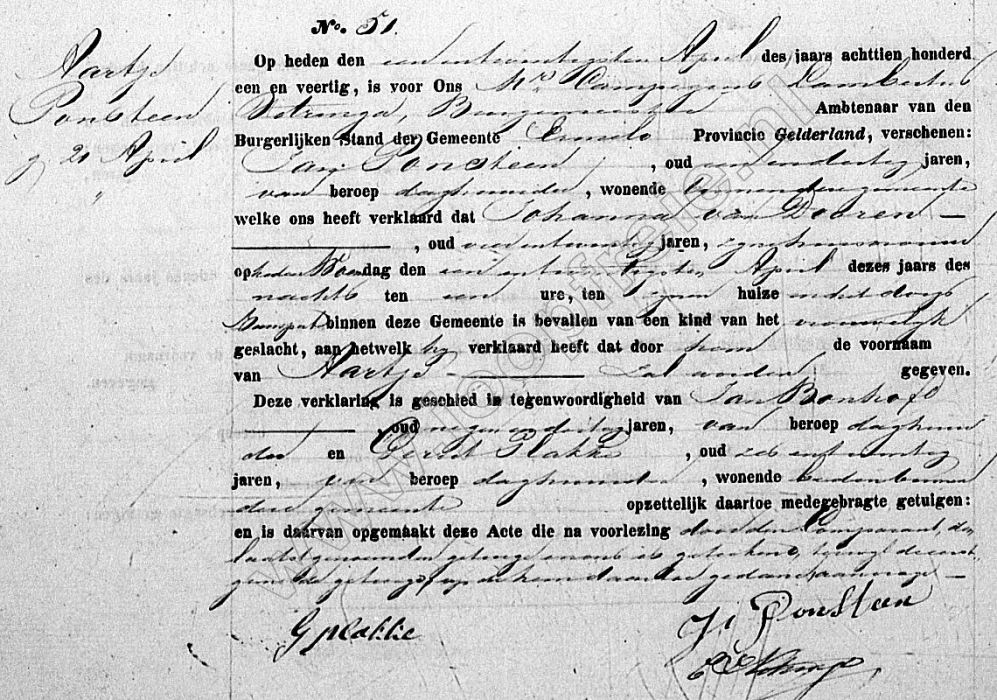 No. 51.
Aartje
Ponsteen
g. 21 April
Op heden den een en twentigsten April des jaars achttien honderd
een en veertig, is voor Ons Mr. Campegius Lambertus
Vitringa, Burgemeester Ambtenaar van den
Burgerlijken Stand der Gemeente Ermelo Provincie Gelderland, verschenen:
Jan Ponsteen, oud een en dertig jaren,
van beroep daghuurder, wonende binnen deze gemeente
welke ons heeft verklaard dat Johanna van Dooren
, oud vier en twentig jaren, zyne huisvrouw
op heden Woensdag den een en twentigsten April dezes jaars des
nachts ten een ure, ten zynen huize in het dorp
binnen deze Gemeente is bevallen van een kind van het vrouwelyk
geslacht, aan hetwelk hy verklaard heeft dat door hem de voornaam
van Aartje zal worden gegeven.
Deze verklaring is geschied in tegenwoordigheid van Jan Bonhof
, oud negen en dertig jaren, van beroep daghuur
der en Gerrit Plakke, oud zes en twentig
jaren, van beroep daghuurder, wonende beiden binnen
deze gemeente opzettelijk daartoe medegebragte getuigen:
en is daarvan opgemaakt deze Acte die na voorlezing door den Comparant, den
laatstgenoemden getuige en ons is getekend, terwyl de eerst
gem. de getuige, op de hem daartoe gedane aanvrage
G plakke
J. Ponsteen